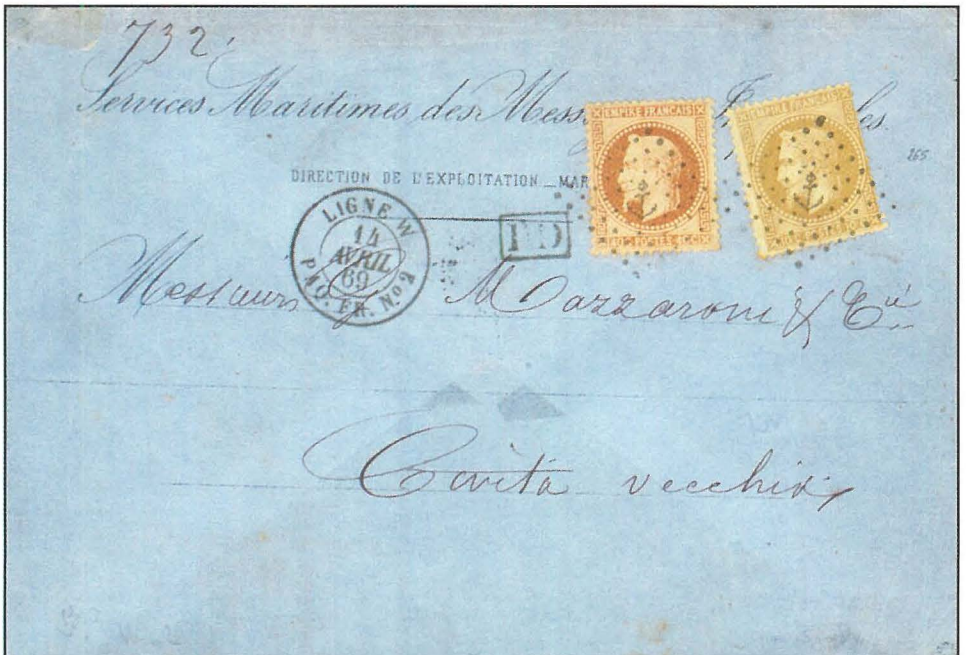 732.
Services Maritimes des Mess les.
EMPIRE FRANÇAIS
EMPIRE FRANÇAIS
265
DIRECTION DE L'EXPLOITATION _ MAR
40 C. POSTES 40 C.
LIGNE W
14
AVRIL
69
PAQ. FR. No 2
PD
Messieurs Mazzaroni & Cie
Civita vecchia